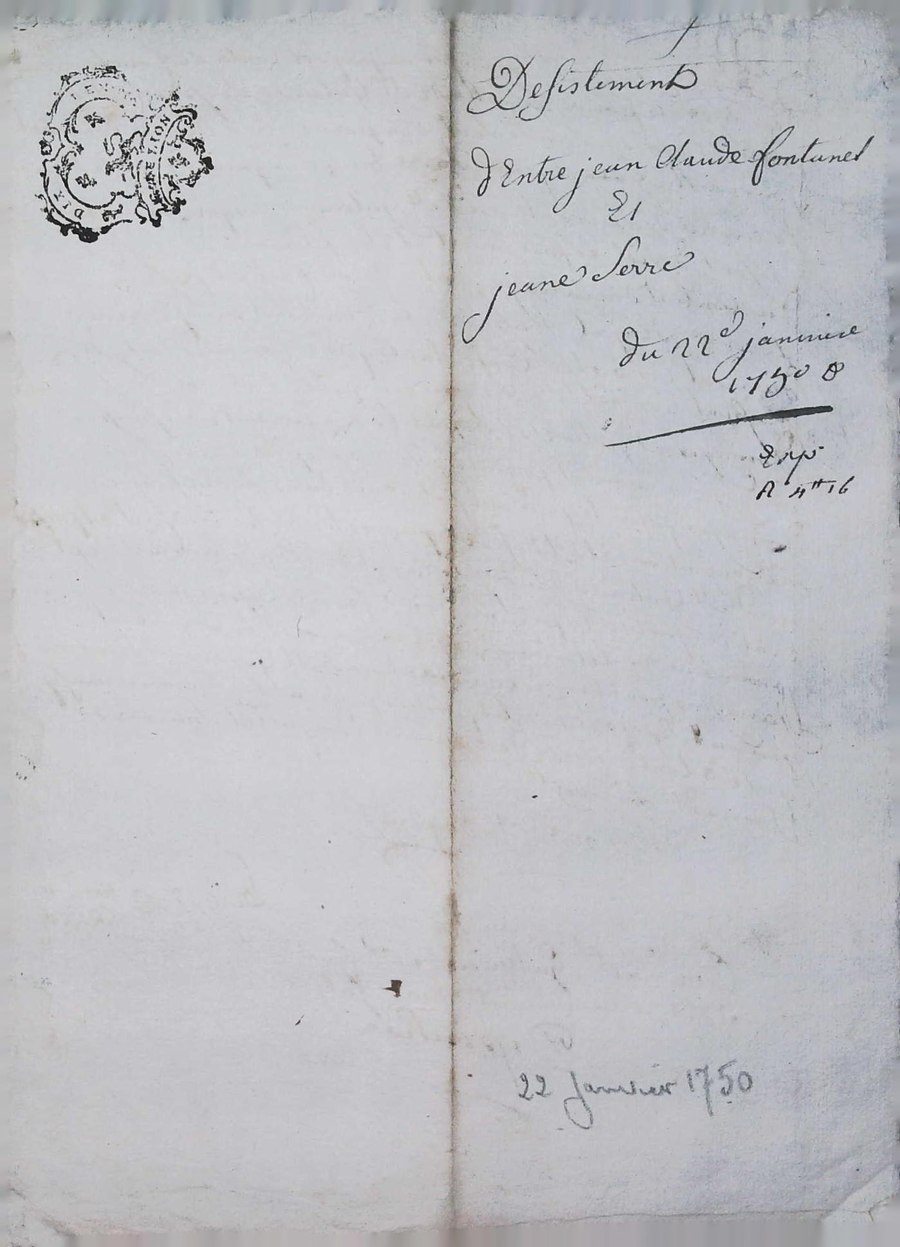 DIX DEN
ETION
Desistement
d'Entre jean Claude fontanel
Et
jeane Serre
du 22e janvire
1750
Exp
R 4tt 16
22 Janvier 1750